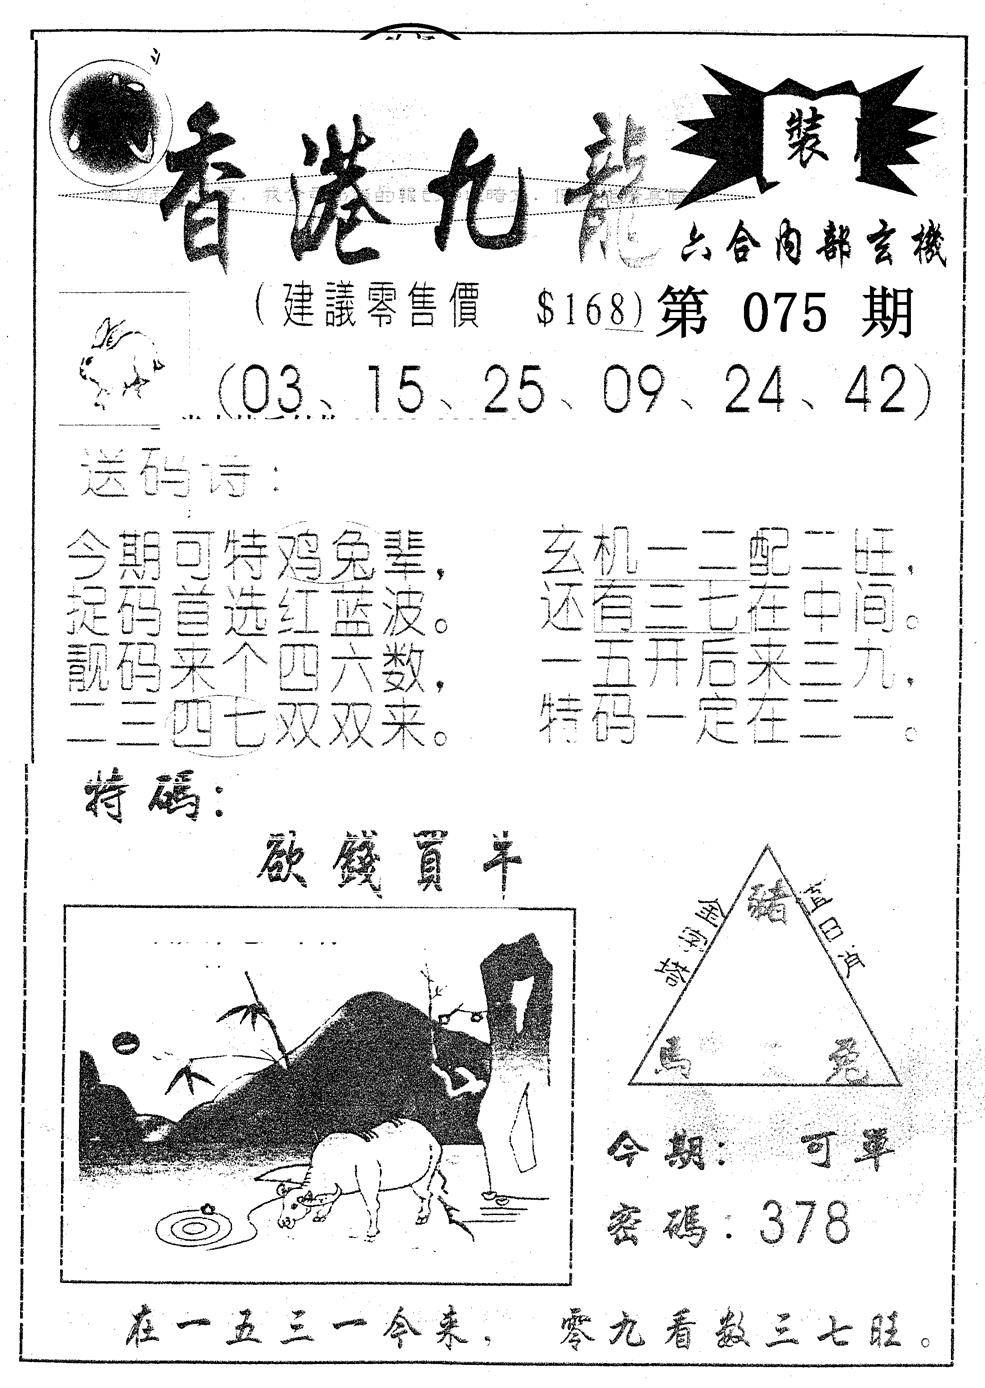 香港九龍
裝
六合內部玄機
(建議零售價 $168)
第 075 期
(03、15、25、09、24、42)
送码诗:
今期可特鸡兔辈,
捉码首选红蓝波。
靓码来个四六数,
二三四七双双来。
玄机一二配二旺,
还有三七在中间。
一五开后来三九,
特码一定在二一。
特碼:
欲錢買羊
金字塔
豬
馬 兔
今期: 可單
密碼:378
在一五三一今来, 零九看数三七旺。